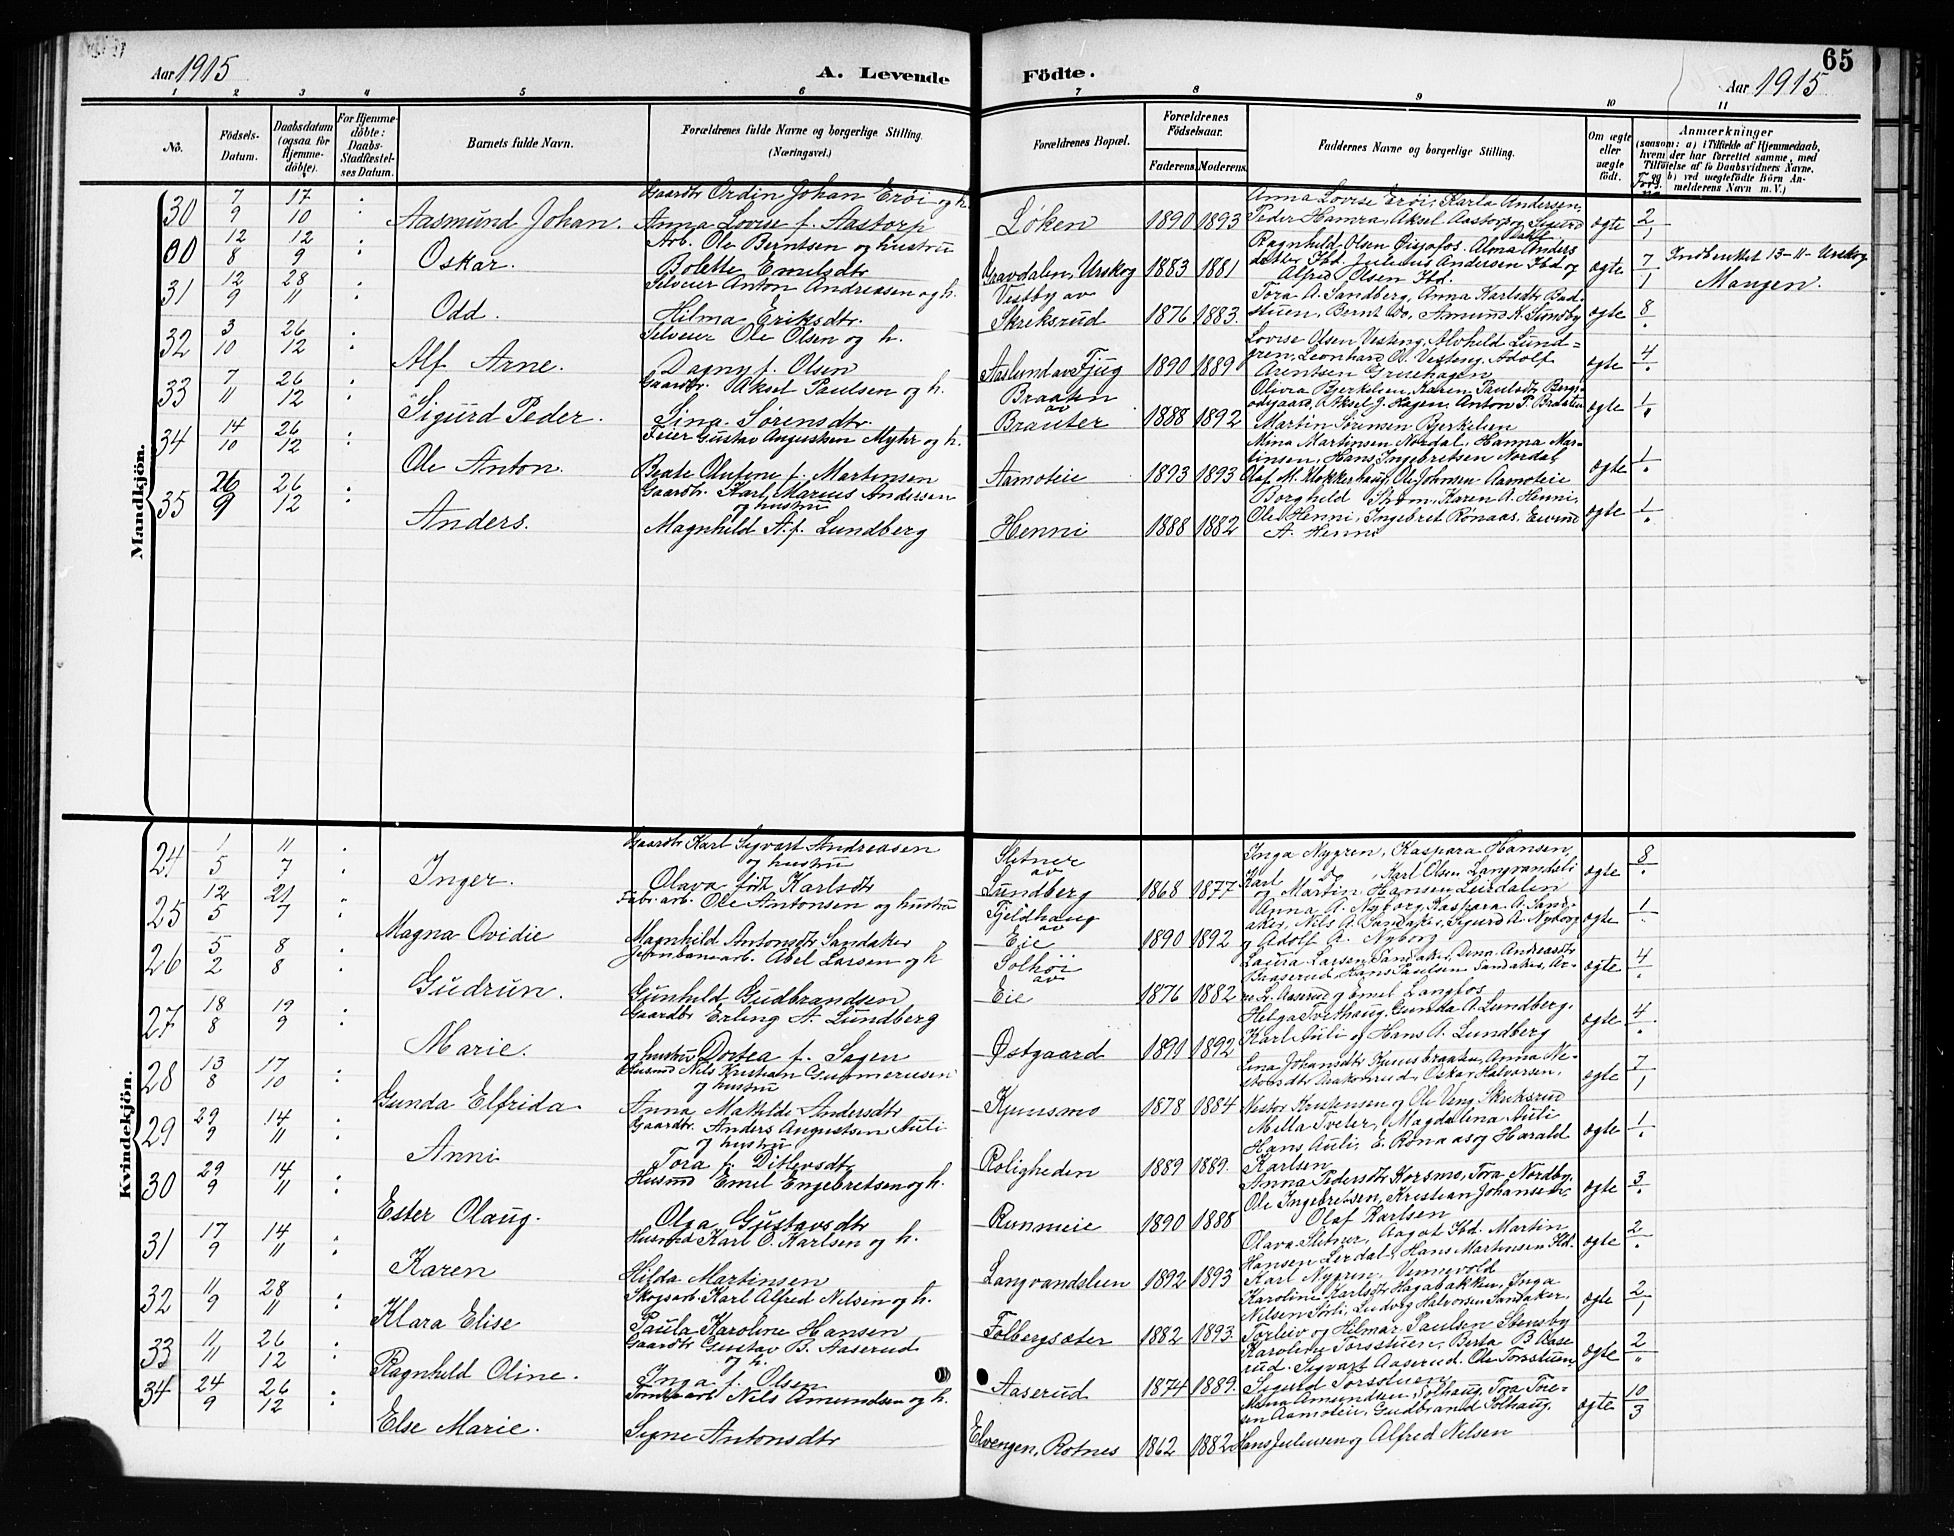 65
Aar 1915
A. Levende Födte.
Aar 1915
1 2 3 4 5 6 7 8 9 10 11
No.
Födsels-Datum.
Daabsdatum (ogsaa for Hjemme-döbte).
For Hjemme-döbte: Daabs-Stadfæstel-ses Datum.
Barnets fulde Navn.
Forældrenes fulde Navne og borgerlige Stilling.
(Næringsvei.)
Forældrenes Bopæl.
Forældrenes Födselsaar.
Faderens. Moderens.
Faddernes Navne og borgerlige Stilling.
Om ægte eller uægte födt.
Anmærkninger
(saasom: a) i Tilfælde af Hjemmedaab,
hvem der har forrettet samme, med
Tilföielse af to Daabsvidners Navne.
b) ved uægtefödte Börn An-
melderens Navn m. V.)
Mandkjön.
30 7/9 17/10 Aasmund Johan. Gaardbr Ordin Johan Erøi og h. Anna Lovise f. Aastorp Løken 1890 1893 Anna Lovise Erøi, Karla Andersen, Peder Hamra, Aksel Aastorp og Sigurd ægte 2/1
00 12/8 12/9 Oskar. Arb. Ole Berntsen og hustru Bolette Emilsdtr Gravdalen, Urskog 1883 1881 Ragnhild Olsen Alma Anders datter Ibd. Julius Andersen Ibd og Alfred Olsen Ibd. ægte 7/1 Indberettet 13-11- Urskog Mangen.
31 12/9 28/11 Odd. Selveier Anton Andreasen og h. Hilma Eriksdtr. Vestby av Skriksrud 1876 1883. Tora A. Sandberg, Anna Karlsdtr Bad- stuen, Bernt Do, Amund K. Sundby ægte 8/.
32 3/10 26/12 Alf Arne. Selveier Ole Olsen og h. Dagny f. Olsen Aaslund av Tjug 1890 1889 Lovise Olsen Vesteng, Alvhild Lund= gren, Leonhard O. Vesteng, Adolf Arentsen Gruehagen ægte 4/.
33 7/11 26/12 Sigurd Peder. Gaardbr. Aksel Paulsen og h. Lina Sørensdtr. Braaten av Brauter 1888 1892 Olivia Bjerkelien, Karen Paulsdtr Aksel J. Hagen, Anton P. Braaten Martin Sørensen Bjerkelien ægte 1/.
34 14/10 26/12 Ole Anton. Feier Gustav Augustsen Myhr og h. Beate Olufine f. Martensen Aamoteie 1893 1893 Mina Martinsen Nordal, Hanna Mar- tinsen, Hans Ingebretsen Nordal, Olaf M. Klokkerhaug, Ole Johnsen Aamoteie ægte 1/.
35 26/9 26/12 Anders. Gaardbr. Karl Marius Andersen og hustru Magnhild A. f. Lundberg Henni 1888 1882 Borghild Strøm, Karen A. Henni, Ole Henni, Ingebret Rønaas, Eivind A. Henni ægte 1/.
Kvindekjön.
24 1/5 11/7 Inger. Gaardbr Karl Sigvart Andreasen og hustru Olava født Karlsdtr Sletner av Lundberg 1868 1877 Inga Nygren, Kaspara Hansen, Karl Do, Karl Olsen Langvandsli og Martin Hansen Leirdalen ægte 8/.
25 12/5 21/7 Magna Ovidie Fabr. arb. Ole Antonsen og hustru Magnhild Antonsdtr Sandaker Fjeldhaug av Eie 1890 1892 Anna A. Nyborg, Kaspara A. Sand- aker, Nils A. Sandaker, Sigurd A. Nyborg og Adolf A. Nyborg ægte 1/.
26 5/2 8/8 Gudrun. Jernbanearb. Abel Larsen og h Gunhild Gudbrandsen Solhøi av Eie 1876 1882 Laura Larsen Sandaker, Dina Andreasdtr Braserud, Hans Paulsen Sandaker, Ar- ne Lr. Aaserud og Emil Langfos ægte 4/.
27 18/8 19/9 Marie. Gaardbr Erling A. Lundberg og hustru Dortea f. Sagen Østgaard 1891 1892 Helga Tvethaug, Gunda A. Lundberg, Karl Auli og Hans A. Lundberg ægte 4/.
28 13/8 17/10 Gunda Elfrida. Husmd Nils Kristian Gummerusen og hustru Anna Mathilde Andersdtr Kjuusmo 1878 1884 Lina Johansdtr Kjuusbraaten, Anna Ne- storsdtr Oskar Halvorsen, Nestor Kristensen og Ole Veng Skriksrud ægte 7/1
29 29/9 14/11 Anni Gaardbr. Anders Augustsen Auli og hustru Tora f. Ditlevsdtr Roligheden 1889 1889. Milla Tveter, Magdalena Auli Hans Auli, E. Rønaas og Harald Karlsen ægte 1/.
30 29/9 14/11 Ester Olaug. Husmd Emil Engebretsen og h. Olga Gustavsdtr Runnieie 1890 1888 Anna Pedersdtr Korsmo, Tora Nordby, Ole Ingebretsen, Kristian Johansen Olaf Karlsen ægte 3/.
31 17/9 14/11 Karen Husmd Karl O. Karlsen og h. Hilda Martinsen Langvandslien 1892 1893 Olava Sletner, Aagot Ibd. Martin Hansen Lerdal, Hans Martinsen Ibd. Karl Nygren, Vennevold ægte 2/.
32 11/9 28/11 Klara Elise Skogsarb. Karl Alfred Nilsen og h. Paula Karoline Hansen Folbergsæter 1882 1893 Karoline Karlsdtr Hagabakken, Inga Nilsen Sørli, Ludvig Halvorsen Sandaker, Torleiv og Hilmar Paulsen Stensby ægte 2/1
33 11/11 26/12 Ragnhild Oline. Gaardbr Gustav B. Aaserud og h. Inga f. Olsen Aaserud 1874 1889. Karoline Torsstuen, Berta B. Aase rud. Sigvart Aaserud. Ole Torsstuen, Sigurd Torsstuen ægte 2/"
34 24/9 26/12 Else Marie. Nils Amundsen og h. Signe Antonsdtr Elvengen, Rotnes 1862 1882 Maria Amundsen, Solhaug, Tora Tore- sen Aamoteie, Gudbrand Solhaug, Hans Juliussen og Alfred Nilsen ægte 10/3